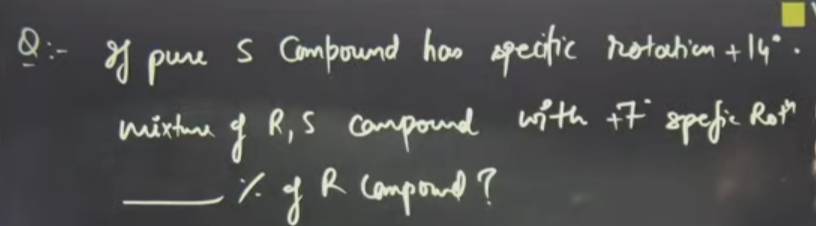 Q:- If pure S Compound has specific rotation +14°.
mixture of R,S compound with +7° spefic Rotⁿ
_____ % of R Compound?